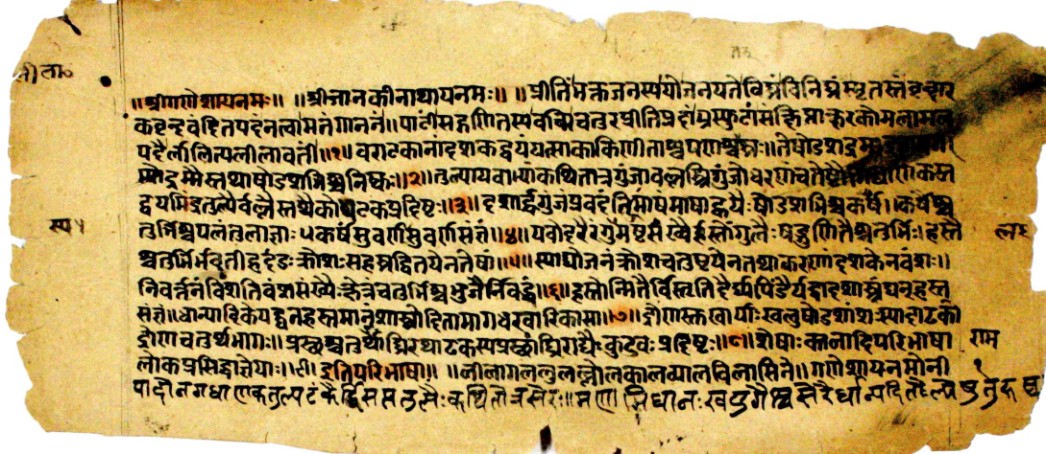 लीला॰
॥श्रीगणेशायनमः॥ ॥श्रीजानकीनाथायनमः॥ ॥प्रीतिंभक्तजनस्ययोजनयतेविघ्नंविनिघ्नंस्मृतस्तंवृन्दार
कवृन्दवंदितपदंनत्वामतंगाननं॥पाटींसद्गणितस्यवच्मिचतुरप्रीतिप्रदांप्रस्फुटांसंक्षिप्ताक्षरकोमलामल
पदैर्लालित्यलीलावतीं॥१॥वराटकानांदशकद्वयंयत्साकाकिणीताश्चपणश्चतस्रः॥तेषोडशद्रम्म
द्रम्मैस्तथाषोडशभिश्चनिष्कः॥२॥तुल्यायवाभ्यांकथितात्रगुंजावल्लस्त्रिगुंजोधरणंचतेष्टौ
द्वयमिंद्रतुल्यैर्वल्लैस्तथैकोघटकःप्रदिष्टः॥३॥दशार्द्धगुंजंप्रवदंतिमाषंमाषाह्वयैःषोडशभिश्चकर्षं॥कर्षैश्च
तुर्भिश्चपलंतुलाज्ञाःकर्षंसुवर्णस्यसुवर्णसंज्ञं॥४॥यवोदरैरंगुलमष्टसंख्यैर्हस्तोंगुलैःषड्गुणितैश्चतुर्भिः॥हस्तै
श्चतुर्भिर्भवतीहदंडःक्रोशःसहस्रद्वितयेनतेषां॥५॥स्याद्योजनंक्रोशचतुष्टयेनतथाकराणांदशकेनवंशः॥
निवर्त्तनंविंशतिवंशसंख्यैःक्षेत्रंचतुर्भिश्चभुजैर्निबद्धं॥६॥हस्तोन्मितैर्विस्तृतिदैर्घ्यपिंडैर्यद्द्वादशास्रंघनहस्त
संज्ञं॥धान्यादिकेयद्घनहस्तमानंशास्त्रोदितामागधखारिकासा॥७॥द्रोणस्तुखार्याःखलुषोडशांशःस्यादाढको
द्रोणचतुर्थभागः॥प्रस्थश्चतुर्थांशइहाढकस्यप्रस्थांघ्रिराद्यैःकुडवःप्रदिष्टः॥८॥शेषाःकालादिपरिभाषा
राम
लोकप्रसिद्धाज्ञेयाः॥९॥इतिपरिभाषा॥ ॥लीलागललुलल्लोलकालव्यालविलासिने॥गणेशायनमोनी
पादोनगद्याणकतुल्यटंकैर्द्विसप्ततुल्यैःकथितोत्रसेरः॥मणाभिधानःखयुगैश्चसेरैर्धान्यादितौल्येषु